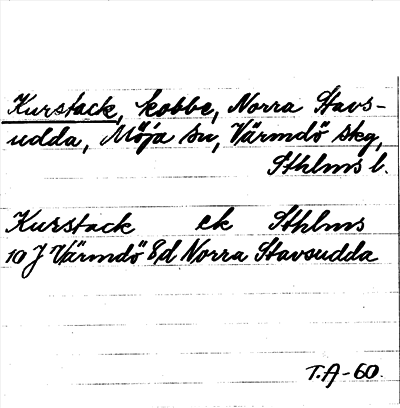 Kurstack, kobbe, Norra Stavs-
udda, Möja sn, Värmdö skg,
Sthlms l.
Kurstack ek Sthlms
10 J Värmdö Ed Norra Stavsudda
T.A-60.